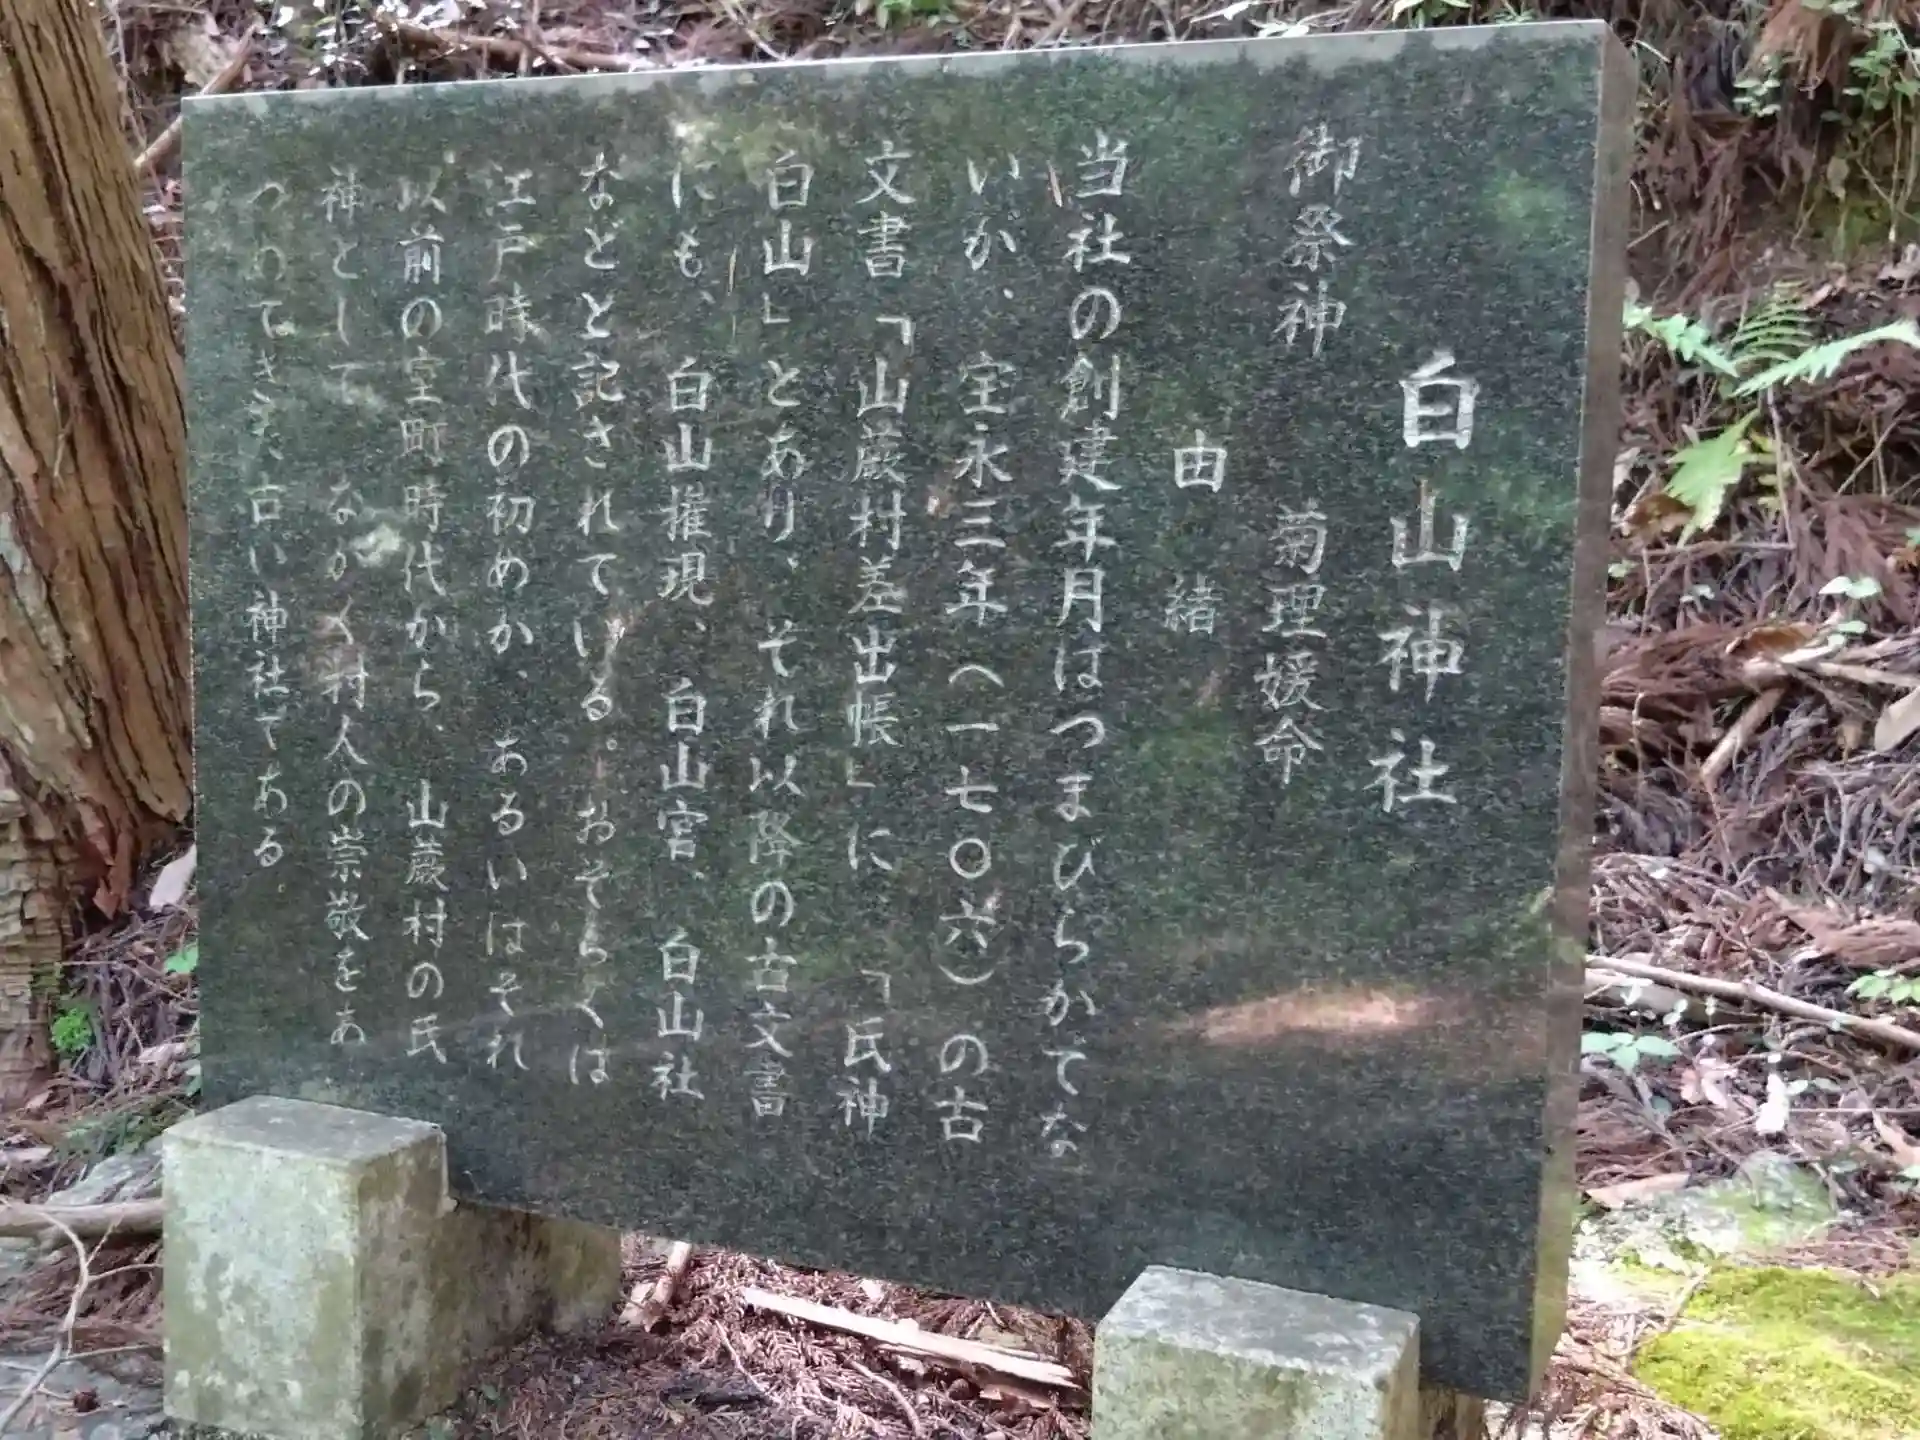 白山神社
御祭神 菊理媛命
由緒
当社の創建年月はつまびらかでな
いが、宝永三年(一七〇六)の古
文書「山蕨村差出帳」に「氏神
白山」とあり、それ以降の古文書
にも、白山権現、白山宮、白山社
などと記されている。おそらくは
江戸時代の初めか、あるいはそれ
以前の室町時代から、山蕨村の氏
神として、ながく村人の崇敬をあ
つめてきた古い神社である。